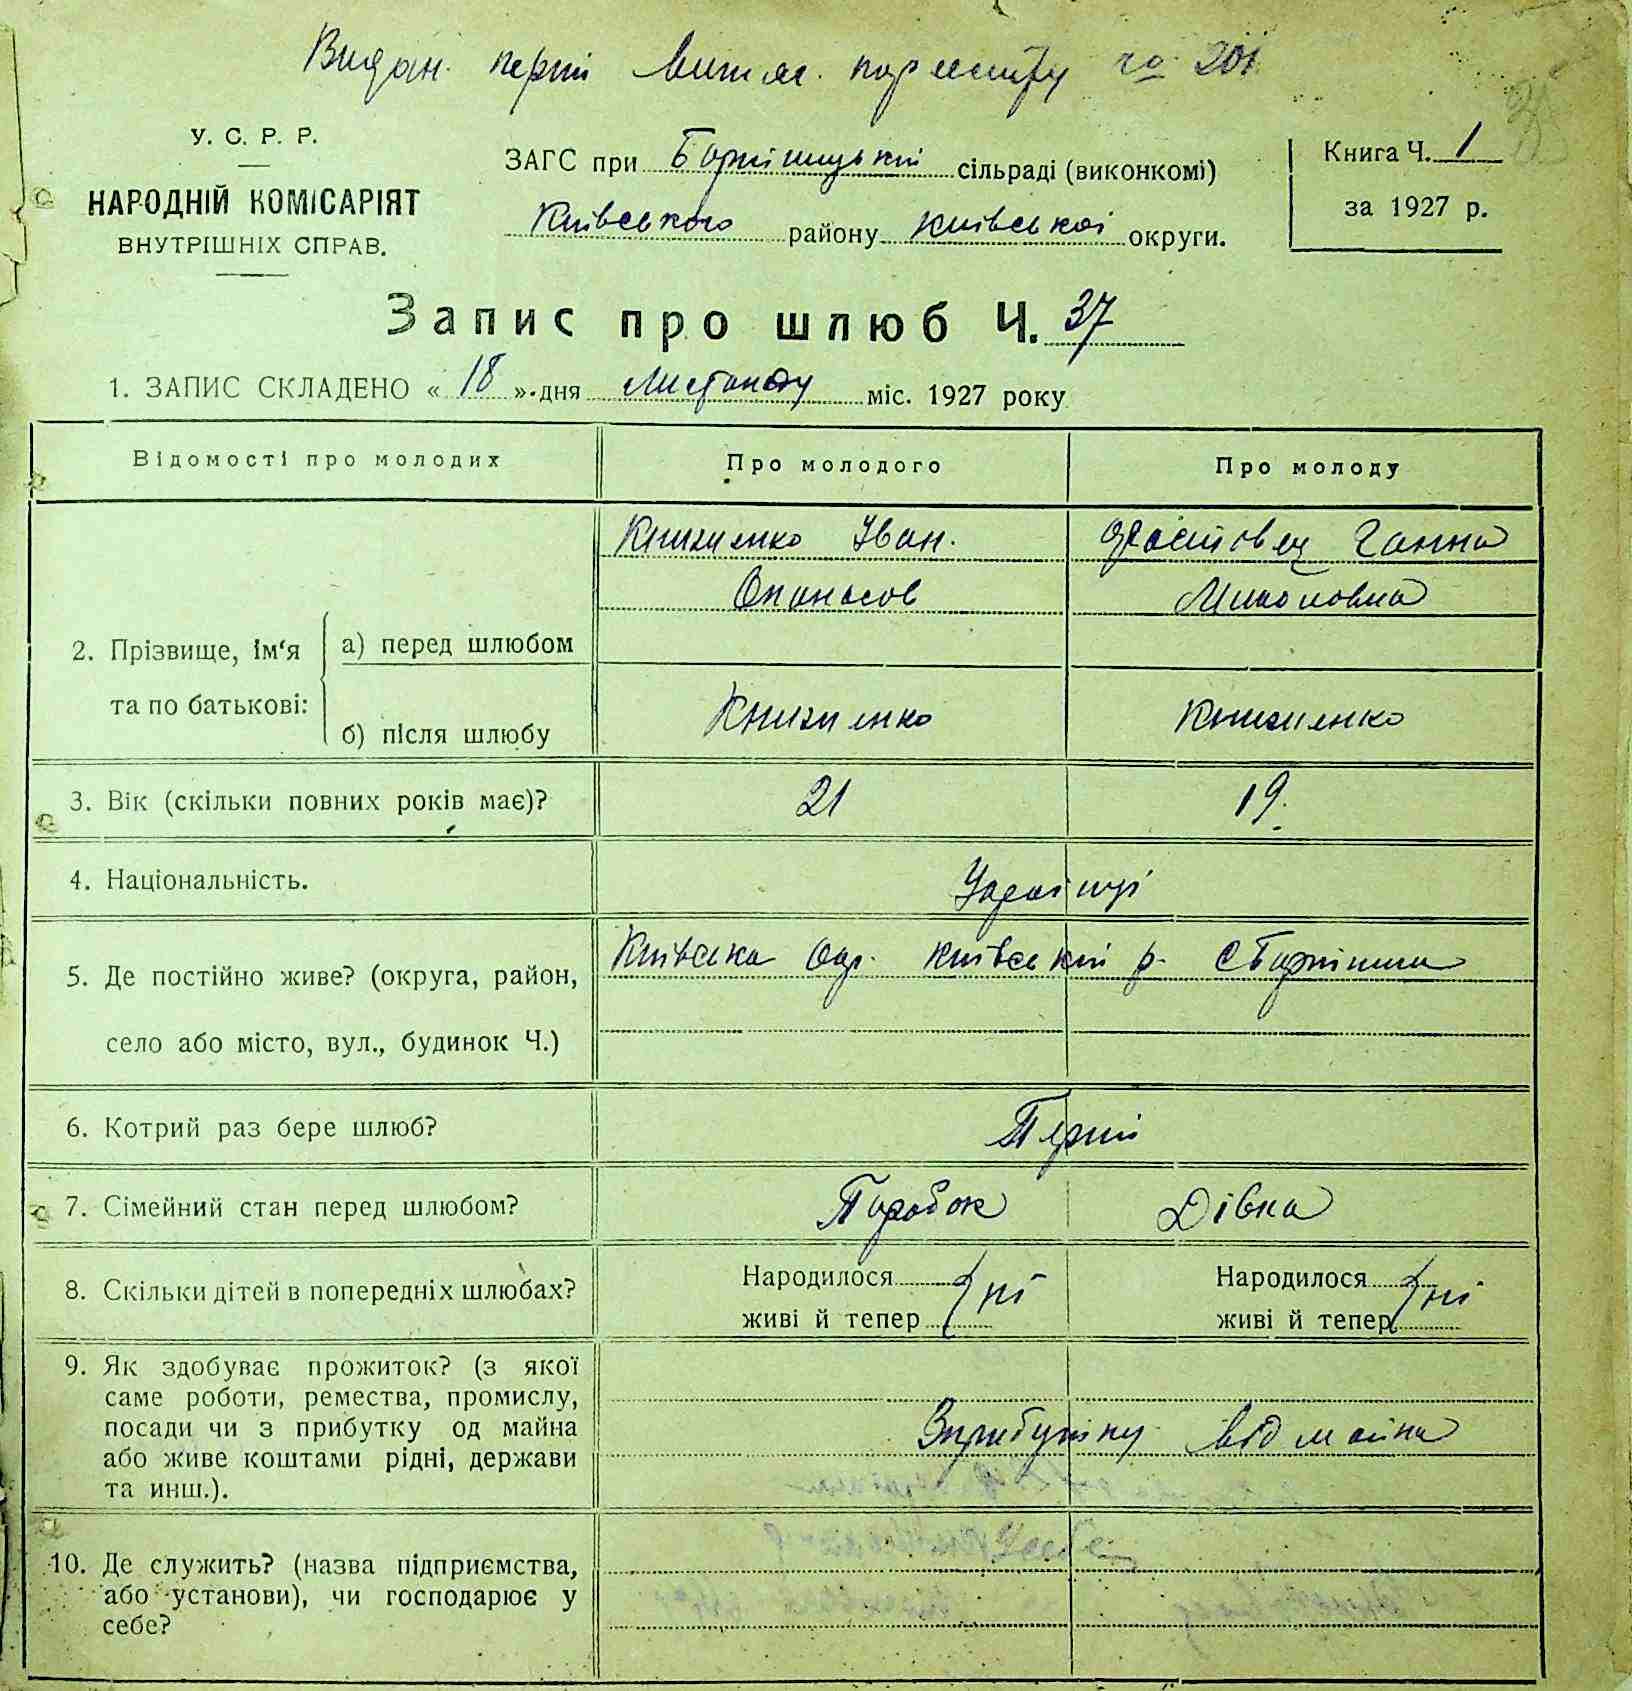 Видан. перші витяг. по реєстру № 201
У. С. Р. Р.
НАРОДНІЙ КОМІСАРІЯТ
ВНУТРІШНІХ СПРАВ.
ЗАГС при Бортницькій сільраді (виконкомі)
Київського району Київської округи.
Книга Ч. 1
за 1927 р.
Запис про шлюб Ч. 37
1. ЗАПИС СКЛАДЕНО « 18 » дня Листопаду міс. 1927 року
Відомості про молодих
Про молодого
Про молоду
2. Прізвище, ім'я та по батькові:
а) перед шлюбом
Іван.
Опанасов
Ганна
Миколовна
б) після шлюбу
3. Вік (скільки повних років має)?
21
19.
4. Національність.
Українці
5. Де постійно живе? (округа, район,
село або місто, вул., будинок Ч.)
Київська окр. Київський р. с Бортничі
6. Котрий раз бере шлюб?
Перший
7. Сімейний стан перед шлюбом?
Паробок
Дівка
8. Скільки дітей в попередніх шлюбах?
Народилося
живі й тепер
ні
Народилося
живі й тепер
ні
9. Як здобуває прожиток? (з якої
саме роботи, ремества, промислу,
посади чи з прибутку од майна
або живе коштами рідні, держави
та инш.).
З прибутку від майна
10. Де служить? (назва підприємства,
або установи), чи господарює у
себе?
У себе